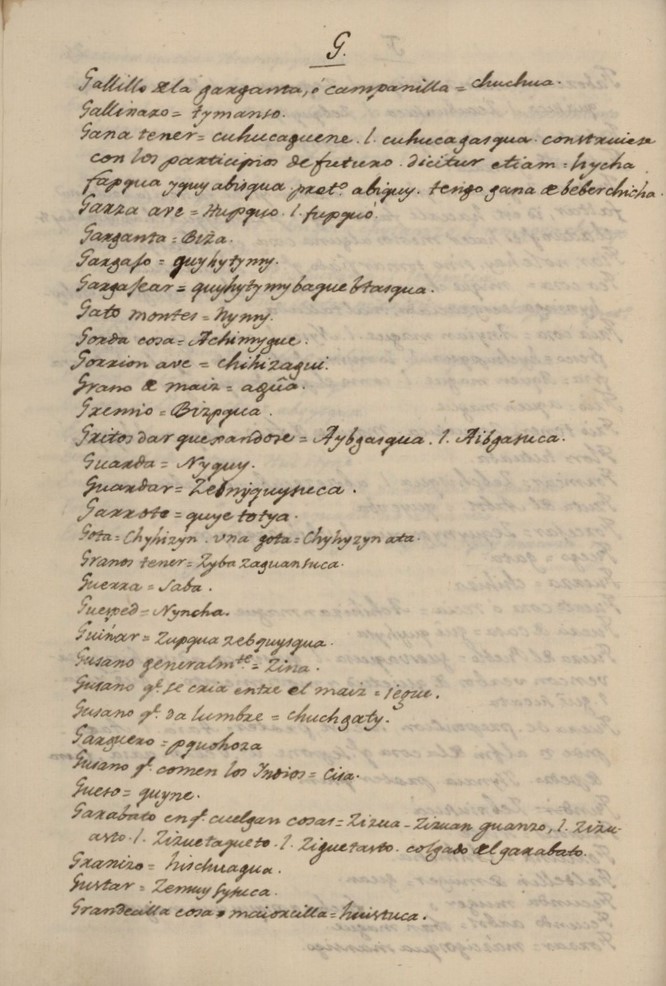 G.
Gallillo de la garganta, ó campanilla = chuchua.
Gallinazo = tymanso.
Gana tener = cuhucaguene. l. cuhucagasqua. construiese
con los participios de futuro. dicitur etiam = hycha
fapqua yquy abisqua. pret.o abiquy. tengo gana de beber chicha.
Garza ave = Hupquo. l. fupquó.
Garganta = Biza.
Gargajo = quyhytymy.
Gargajear = quyhytymy baque btasqua.
Gato montes = hymy.
Gorda cosa = Achimygue.
Gorrion ave = chihizagui.
Grano de maiz = agûa.
Gremio = Bizpqua.
Gritos dar quexandose = Aybgasqua. l. Aibgasuca.
Guarda = Nyquy.
Guardar = Zebnyquysuca.
Garrote = quye totya.
Gota = Chyhizyn. vna gota = Chyhyzyn ata.
Granos tener = Zyba zaguansuca.
Guerra = Saba.
Guesped = Nyncha.
Guiñar = Zupqua zebquysqua.
Gusano generalm.te = Zina.
Gusano q.e se cria entre el maiz = segue.
Gusano q.e da lumbre = chuchgaty.
Garguero = pquohoza
Gusano q.e comen los Indios = cisa.
Gueso = quyne.
Garabato en q.e cuelgan cosas = Zizua - Zizuan guanzo, l. Zizu-
asto. l. Zizuetaqueto. l. Ziguetasto. colgado del garabato.
Granizo = hischuagua.
Gustar = Zemuysysuca.
Grandecilla cosa, maiorcilla = huistuca.